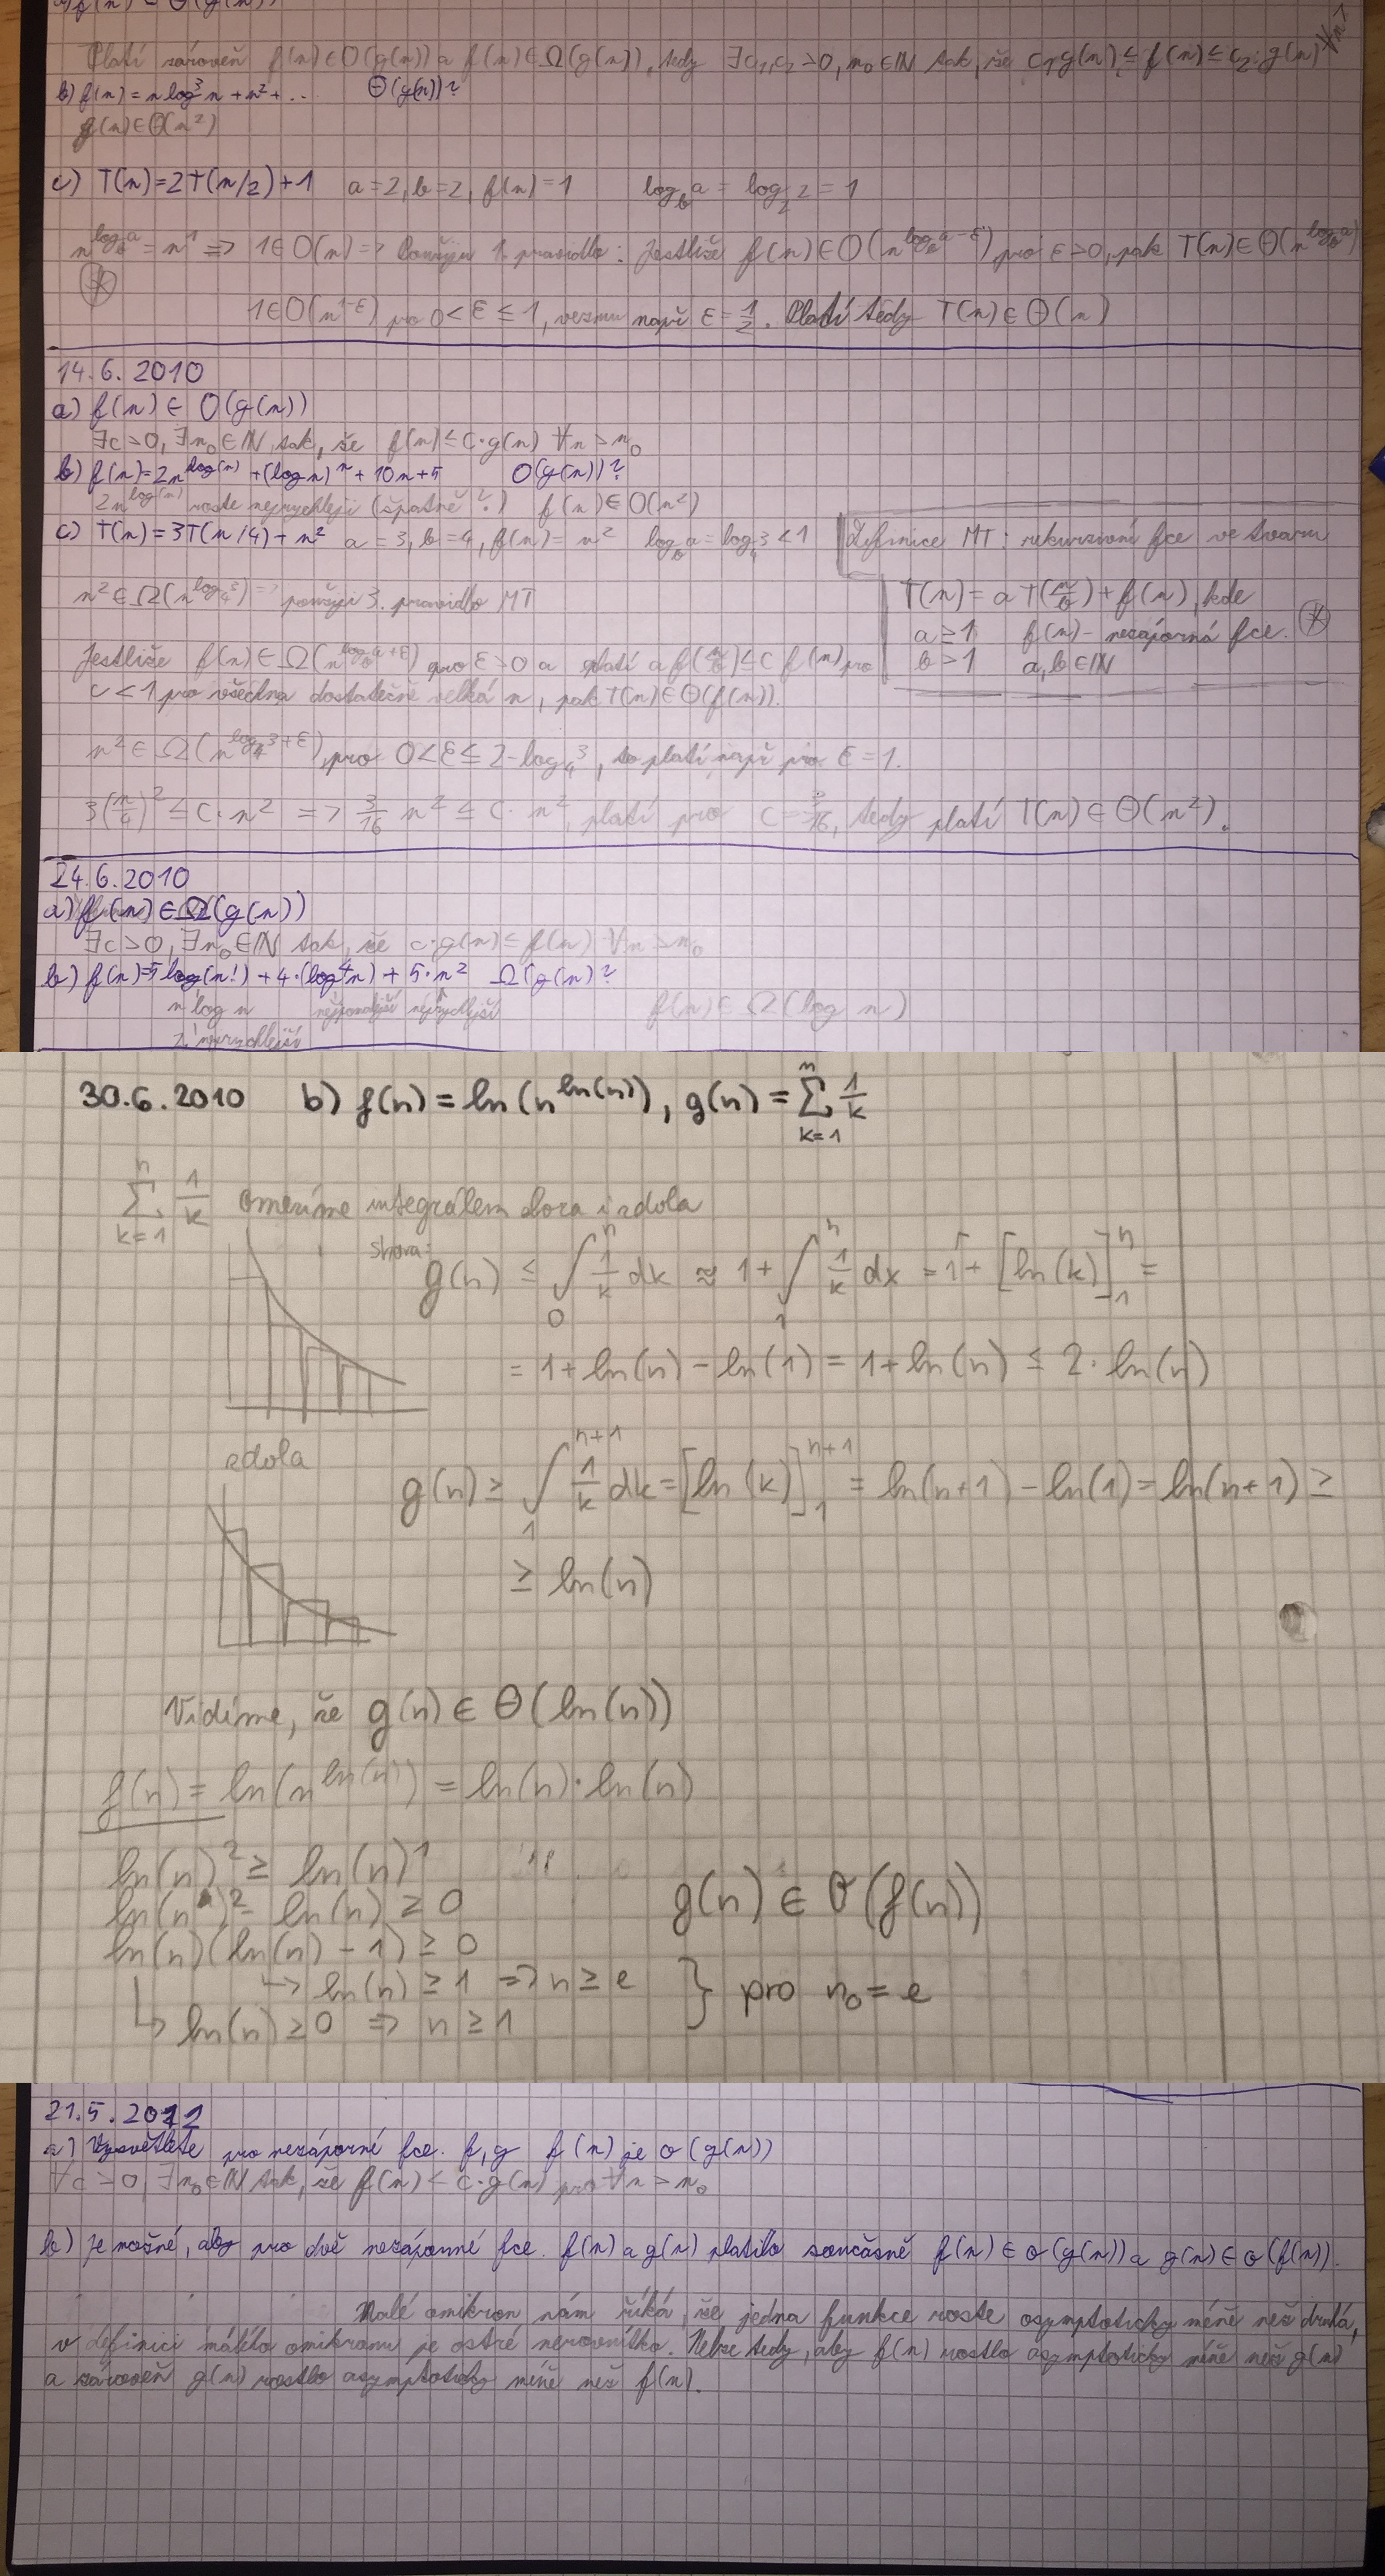 f(n) ∈ Θ(g(n))
Platí zároveň f(n)∈O(g(n)) a f(n)∈Ω(g(n)), tedy ∃c₁,c₂>0, n₀∈ℕ tak, že c₁g(n) ≤ f(n) ≤ c₂·g(n) ∀n>
b) f(n) = n log³n + n² + .. Θ(g(n))?
f(n)∈Θ(n²)
c) T(n)=2T(n/2)+1 a=2, b=2, f(n)=1 log_b a = log₂ 2 = 1
n^(log_b a) = n¹ => 1∈O(n) => Použiju 1. pravidlo: Jestliže f(n)∈O(n^(log_b a - ε)), pro ε>0, pak T(n)∈Θ(n^(log_b a))
(*)
1∈O(n^(1-ε)) pro 0<ε≤1, vezmu např ε=1/2. Platí tedy T(n)∈Θ(n)
14.6.2010
a) f(n) ∈ O(g(n))
∃c>0, ∃n₀∈ℕ tak, že f(n)≤c·g(n) ∀n>n₀
b) f(n)=2n^(log(n)) + (log n)^n + 10n+5 O(g(n))?
2n^(log(n)) roste nejrychleji (špatně?) f(n)∈O(n²)
c) T(n)=3T(n/4)+n² a=3, b=4, f(n)=n² log_b a = log₄ 3 < 1
Definice MT: rekurzivní fce ve tvaru
T(n)=a T(n/b)+f(n), kde
a≥1 f(n) - nezáporná fce. (*)
b>1 a,b∈ℕ
n²∈Ω(n^(log₄ 3)) => použiji 3. pravidlo MT
Jestliže f(n)∈Ω(n^(log_b a+ε)) pro ε>0 a platí a f(n/b)≤c f(n) pro
c<1 pro všechna dostatečně velká n, pak T(n)∈Θ(f(n)).
n²∈Ω(n^(log₄ 3+ε)), pro 0<ε≤2-log₄ 3, to platí např pro ε=1.
3(n/4)² ≤ c·n² => 3/16 n² ≤ c·n², platí pro c=3/16, tedy platí T(n)∈Θ(n²).
24.6.2010
a) f(n)∈Ω(g(n))
∃c>0, ∃n₀∈ℕ tak, že c·g(n)≤f(n) ∀n>n₀
b) f(n)=5log(n!)+4·(log⁴n)+5·n² Ω(g(n)?
n log n nejpomalejší nejrychlejší f(n)∈Ω(log n)
2. nejrychlejší
30.6.2010 b) f(n) = ln(n^(ln(n))), g(n) = Σ_{k=1}^{n} 1/k
Σ_{k=1}^{n} 1/k omezíme integrálem shora i zdola
shora:
g(n) ≤ ∫_0^n 1/k dk ≈ 1+ ∫_1^n 1/k dx = 1+ [ln(k)]_1^n =
= 1+ln(n)-ln(1) = 1+ln(n) ≤ 2·ln(n)
zdola
g(n) ≥ ∫_1^{n+1} 1/k dk = [ln(k)]_1^{n+1} = ln(n+1)-ln(1)=ln(n+1) ≥
≥ ln(n)
Vidíme, že g(n) ∈ Θ(ln(n))
f(n) = ln(n^(ln(n))) = ln(n)·ln(n)
ln(n)² ≥ ln(n)¹
ln(n)² - ln(n) ≥ 0
ln(n)(ln(n)-1) ≥ 0
g(n) ∈ O(f(n))
↳ ln(n) ≥ 1 => n ≥ e
↳ ln(n) ≥ 0 => n ≥ 1
} pro n₀=e
21.5.2012
a) Vysvětlete pro nezáporné fce. f,g f(n) je o(g(n))
∀c>0, ∃n₀∈ℕ tak, že f(n)<c·g(n) pro ∀n>n₀
b) Je možné, aby pro dvě nezáporné fce. f(n) a g(n) platilo současně f(n)∈o(g(n)) a g(n)∈o(f(n)).
Malé omikron nám říká, že jedna funkce roste asymptoticky méně než druhá,
v definici malého omikronu je ostré nerovnítko. Nelze tedy, aby f(n) rostlo asymptoticky méně než g(n)
a zároveň g(n) rostlo asymptoticky méně než f(n).